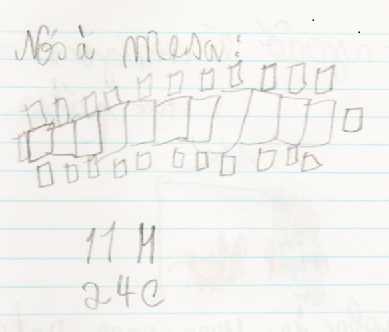 Nós à mesa:
11 M
24 C